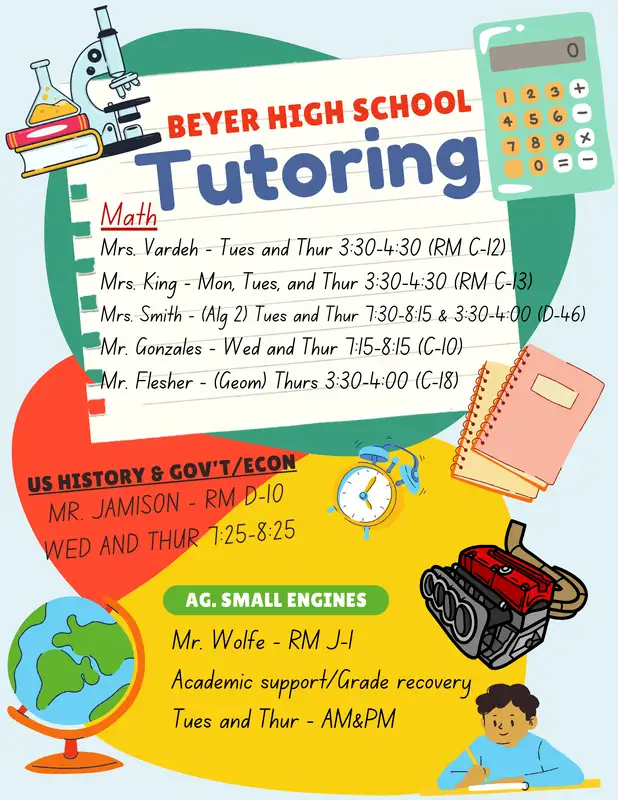 BEYER HIGH SCHOOL
Tutoring
Math
Mrs. Vardeh - Tues and Thur 3:30-4:30 (RM C-12)
Mrs. King - Mon, Tues, and Thur 3:30-4:30 (RM C-13)
Mrs. Smith - (Alg 2) Tues and Thur 7:30-8:15 & 3:30-4:00 (D-46)
Mr. Gonzales - Wed and Thur 7:15-8:15 (C-10)
Mr. Flesher - (Geom) Thurs 3:30-4:00 (C-18)
0
1 2 3 +
4 5 6 -
7 8 9 x
0 = -
US HISTORY & GOV'T/ECON
MR. JAMISON - RM D-10
WED AND THUR 7:25-8:25
AG. SMALL ENGINES
Mr. Wolfe - RM J-1
Academic support/Grade recovery
Tues and Thur - AM&PM